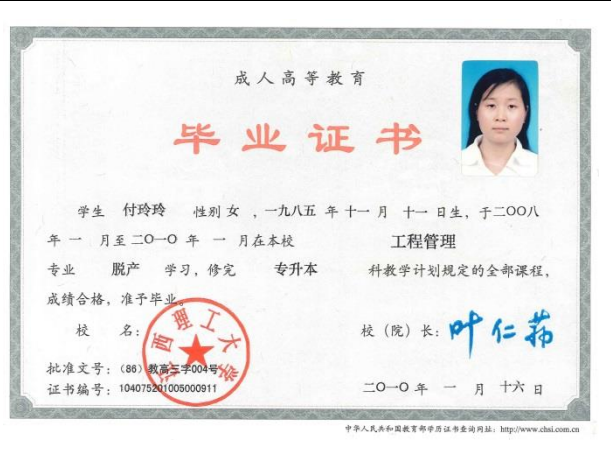 成人高等教育
毕业证书
学生 付玲玲 性别 女 ，一九八五 年 十一 月 十一 日生，于二〇〇八
年 一 月至 二〇一〇 年 一 月在本校 工程管理
专业 脱产 学习，修完 专升本 科教学计划规定的全部课程，
成绩合格，准予毕业。
校 名：
西理工大学
校（院）长：叶仁荪
批准文号：（86）教高三字004号
证书编号：104075201005000911
二〇一〇 年 一 月 十六 日
中华人民共和国教育部学历证书查询网址：http://www.chsi.com.cn